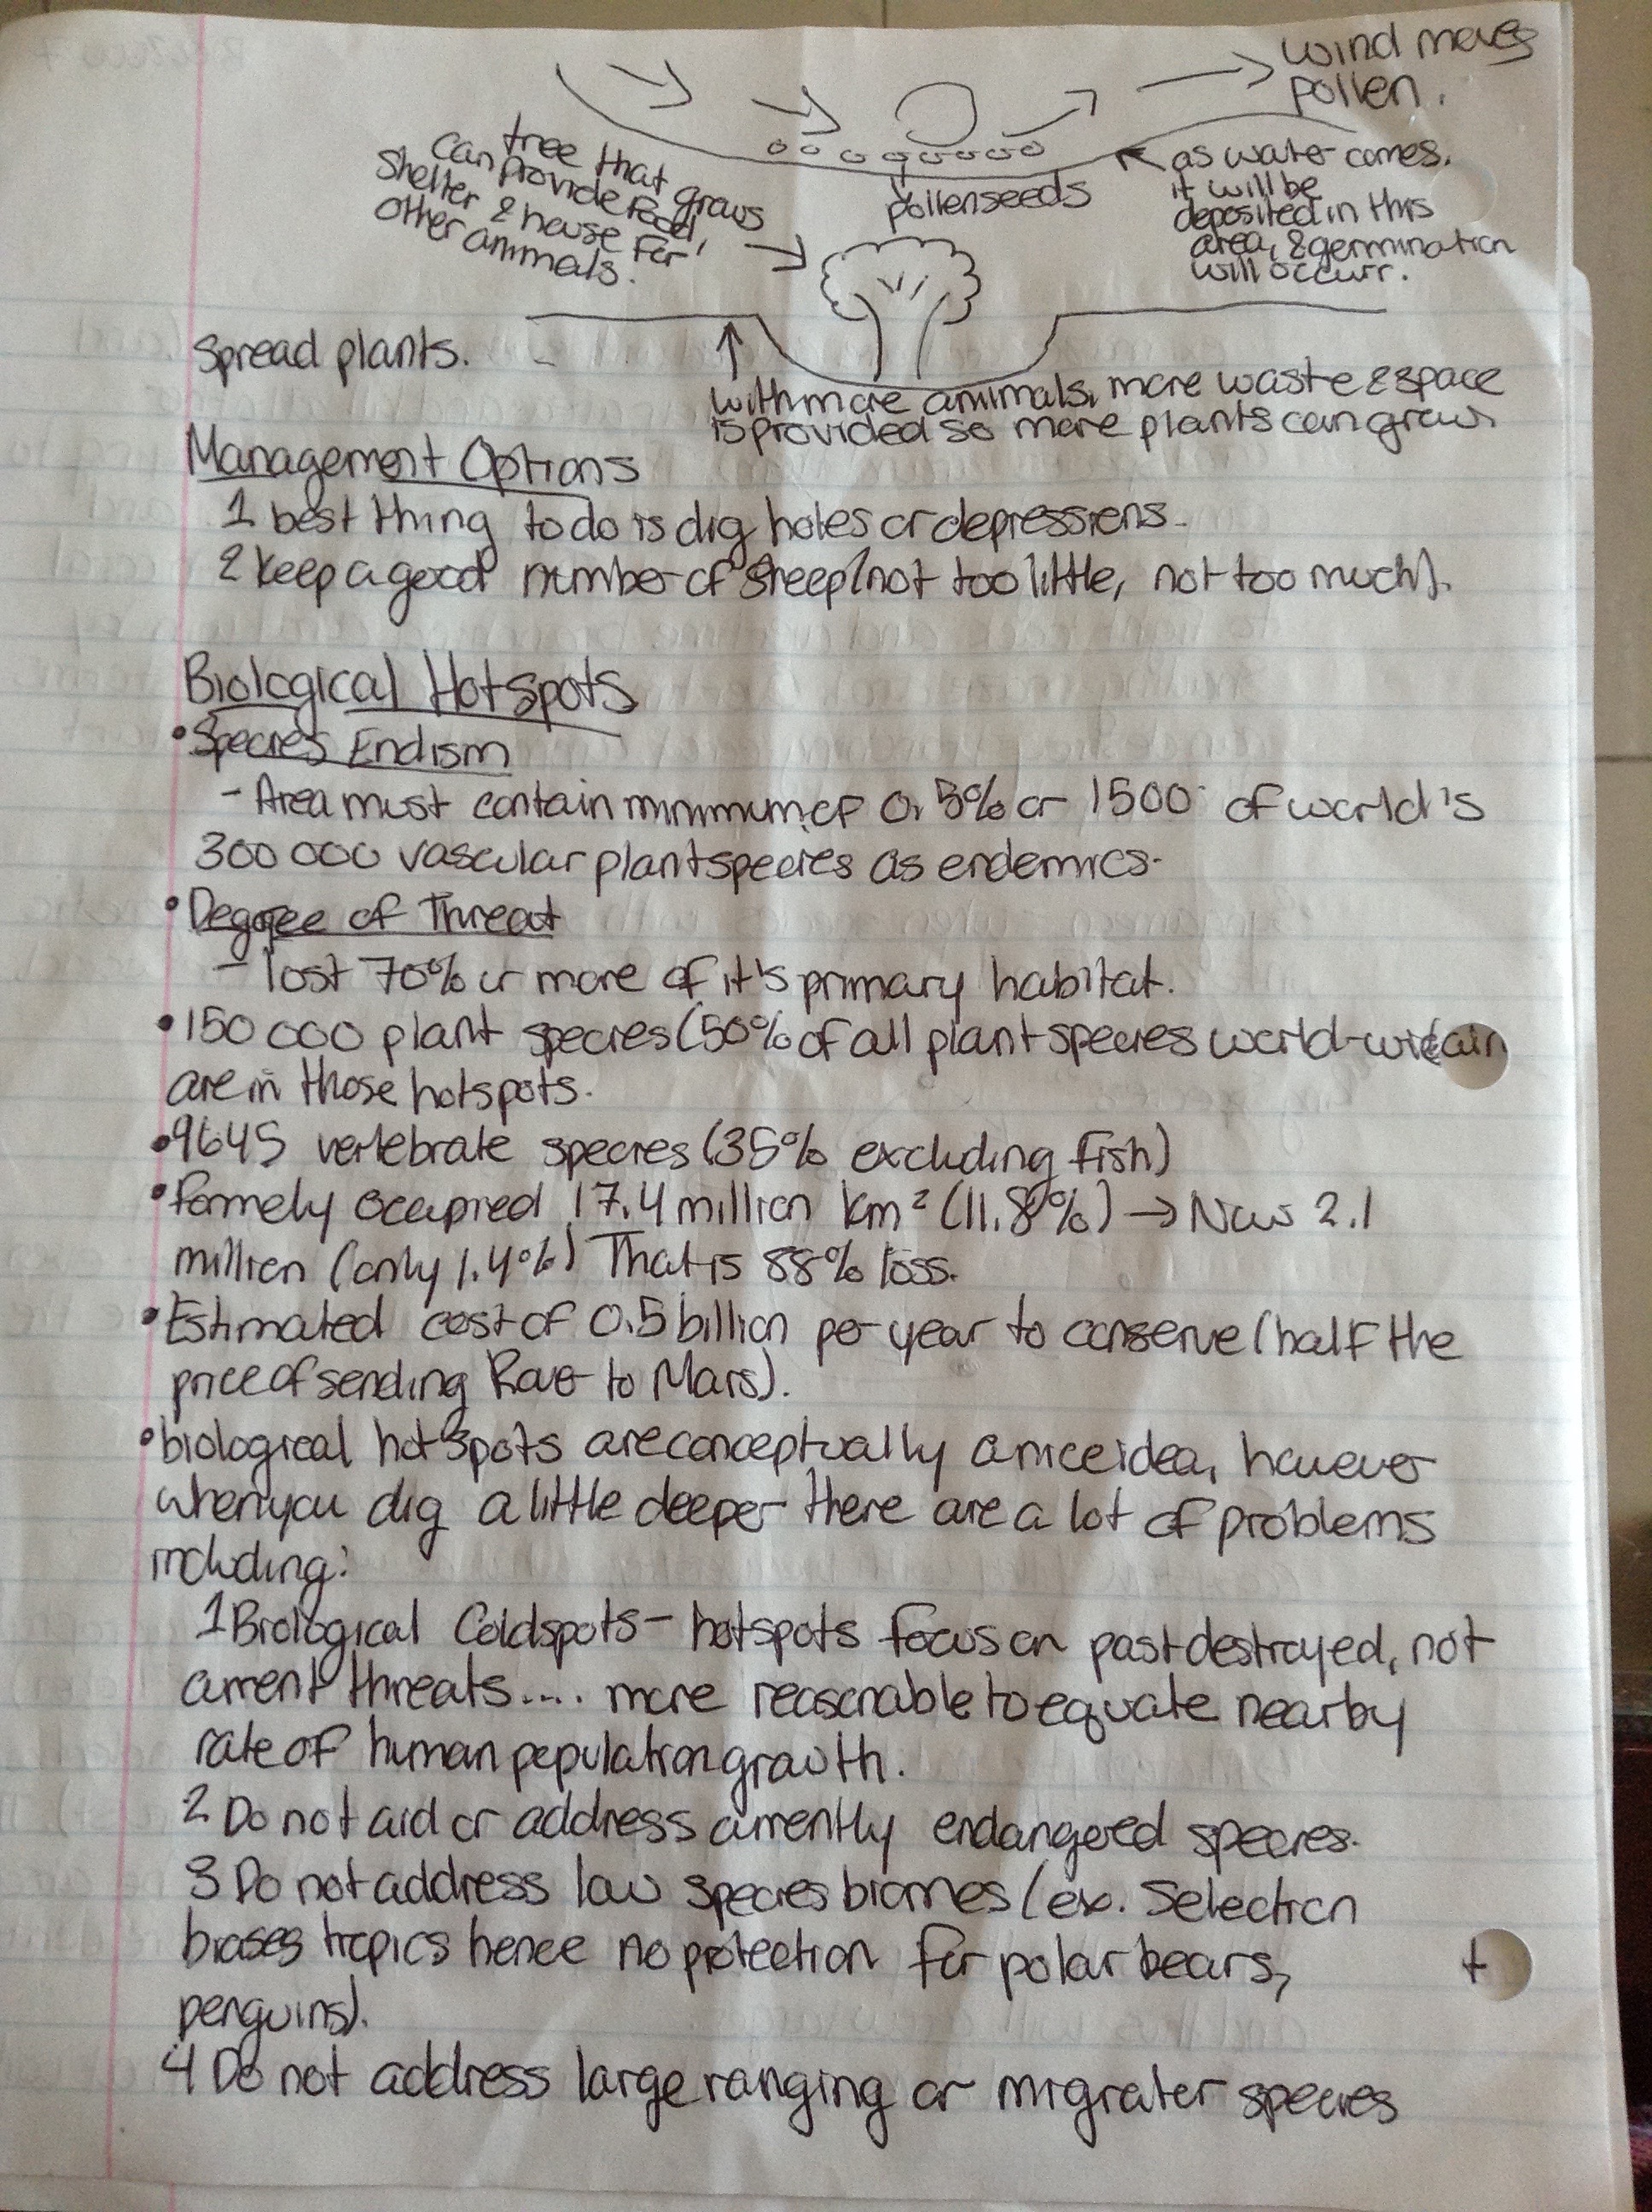 wind moves
pollen.
tree that grows
can provide food,
shelter & house for
other animals.
pollenseeds
as water comes,
it will be
deposited in this
area, & germination
will occurr.
Spread plants.
with more animals, more waste & space
is provided so more plants can grow.
Management Options
1 best thing to do is dig holes or depressions.
2 keep a good number of sheep (not too little, not too much).
Biological Hotspots
• Species Endism
- Area must contain minimum of 0.5% or 1500 of world's
300 000 vascular plant species as endemics.
• Degree of Threat
- lost 70% or more of it's primary habitat.
• 150 000 plant species (50% of all plant species world-wide
are in those hotspots.
• 9645 vertebrate species (35% excluding fish)
• formely occupied 17.4 million km² (11.8%) → Now 2.1
million (only 1.4%) That is 88% loss.
• Estimated cost of 0.5 billion per year to conserve (half the
price of sending Rover to Mars).
• biological hotspots are conceptually a nice idea, however
when you dig a little deeper there are a lot of problems
including:
1 Biological Coldspots - hotspots focus on past destroyed, not
current threats.... more reasonable to equate nearby
rate of human population growth.
2 Do not aid or address currently endangered species.
3 Do not address low species biomes (ex. Selection
biases tropics hence no protection for polar bears,
penguins).
4 Do not address large ranging or migrater species